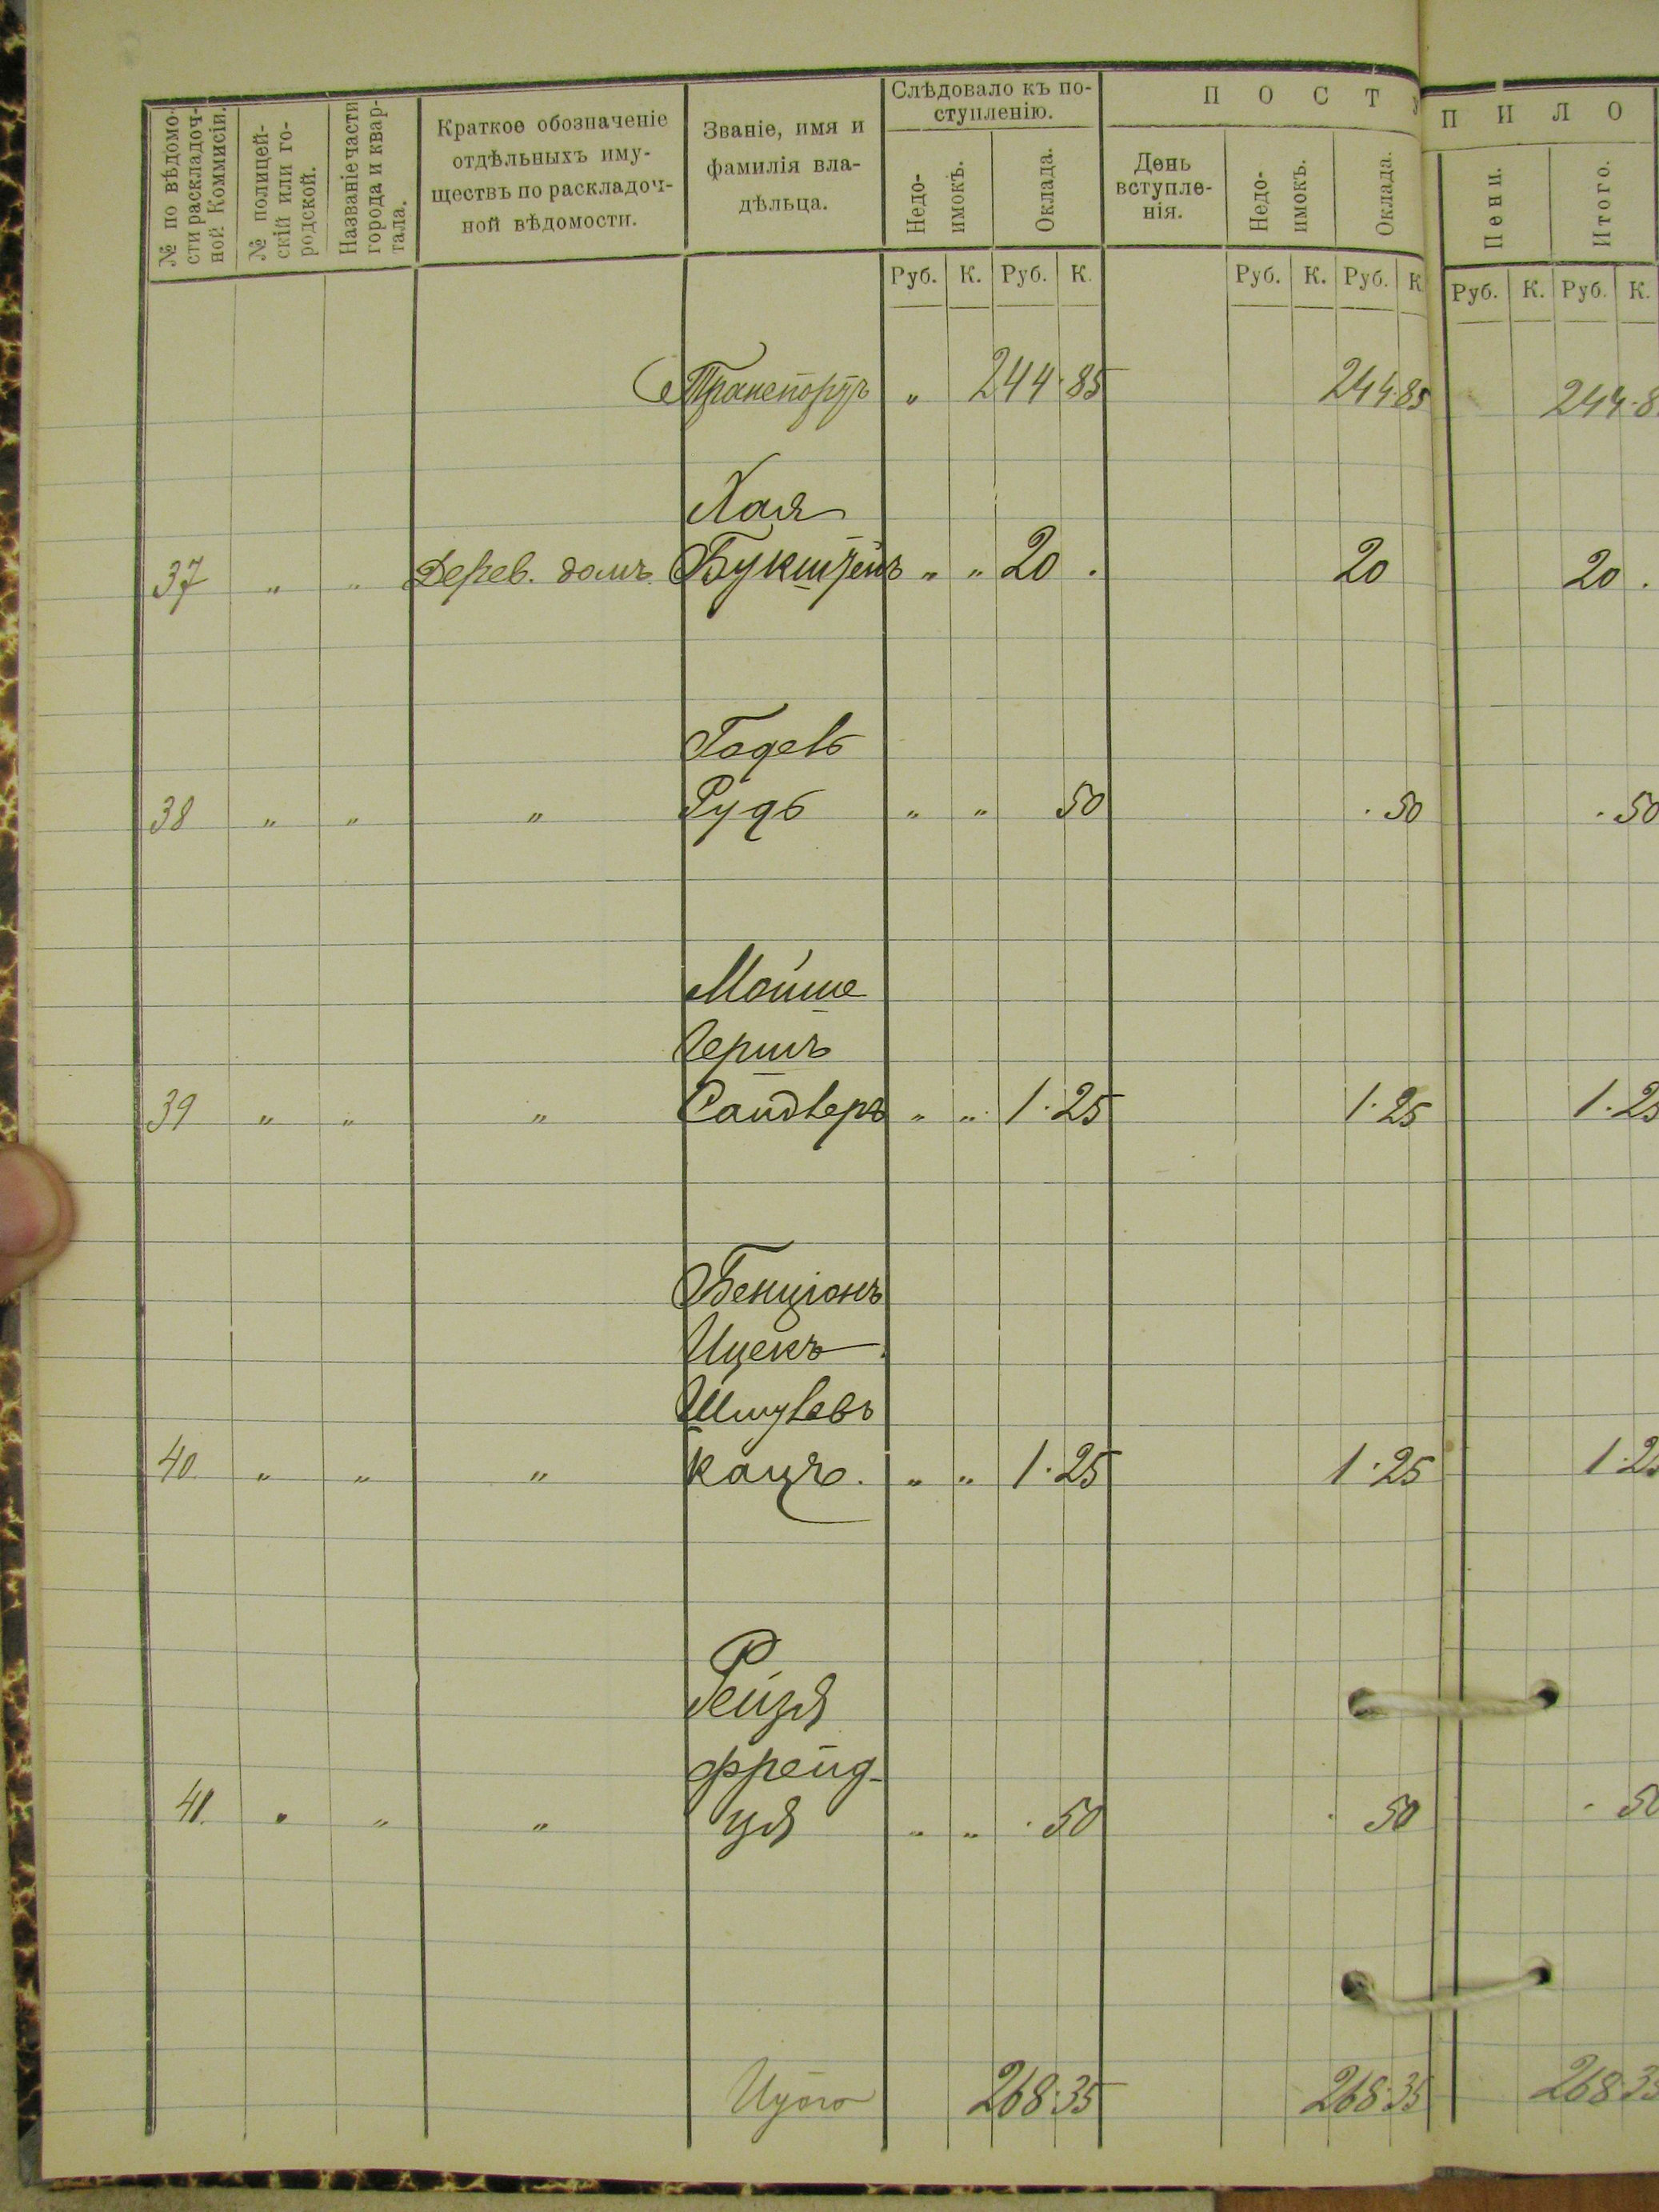 № по вѣдомо-
сти раскладоч-
ной Коммисіи.
№ полицей-
скій или го-
родской.
Названіе части
города и квар-
тала.
Краткое обозначеніе
отдѣльныхъ иму-
ществъ по раскладоч-
ной вѣдомости.
Званіе, имя и
фамилія вла-
дѣльца.
Слѣдовало къ по-
ступленію.
Недо-
имокъ.
Оклада.
П О С Т У П И Л О
День
вступле-
нія.
Недо-
имокъ.
Оклада.
Пени.
Итого.
Руб. К. Руб. К. Руб. К. Руб. К Руб. К. Руб. К.
Транспортъ „ 244·85 244·85 244·8
Хая
37 „ „ Дерев. домъ Букштейнъ „ „ 20 . 20 20 .
38 „ „ „ Рудь „ „ 50 . 50 . 50
Мойше
Гершъ
39 „ „ „ Сандлеръ „ „ 1·25 1·25 1·25
Бенціонъ
Ицекъ
40 „ „ „ Кацъ. „ „ 1·25 1·25 1·25
Рейзя
Фрейд-
41. „ „ „ ця „ „ · 50 · 50 · 50
Итого 268·35 268·35 268·35